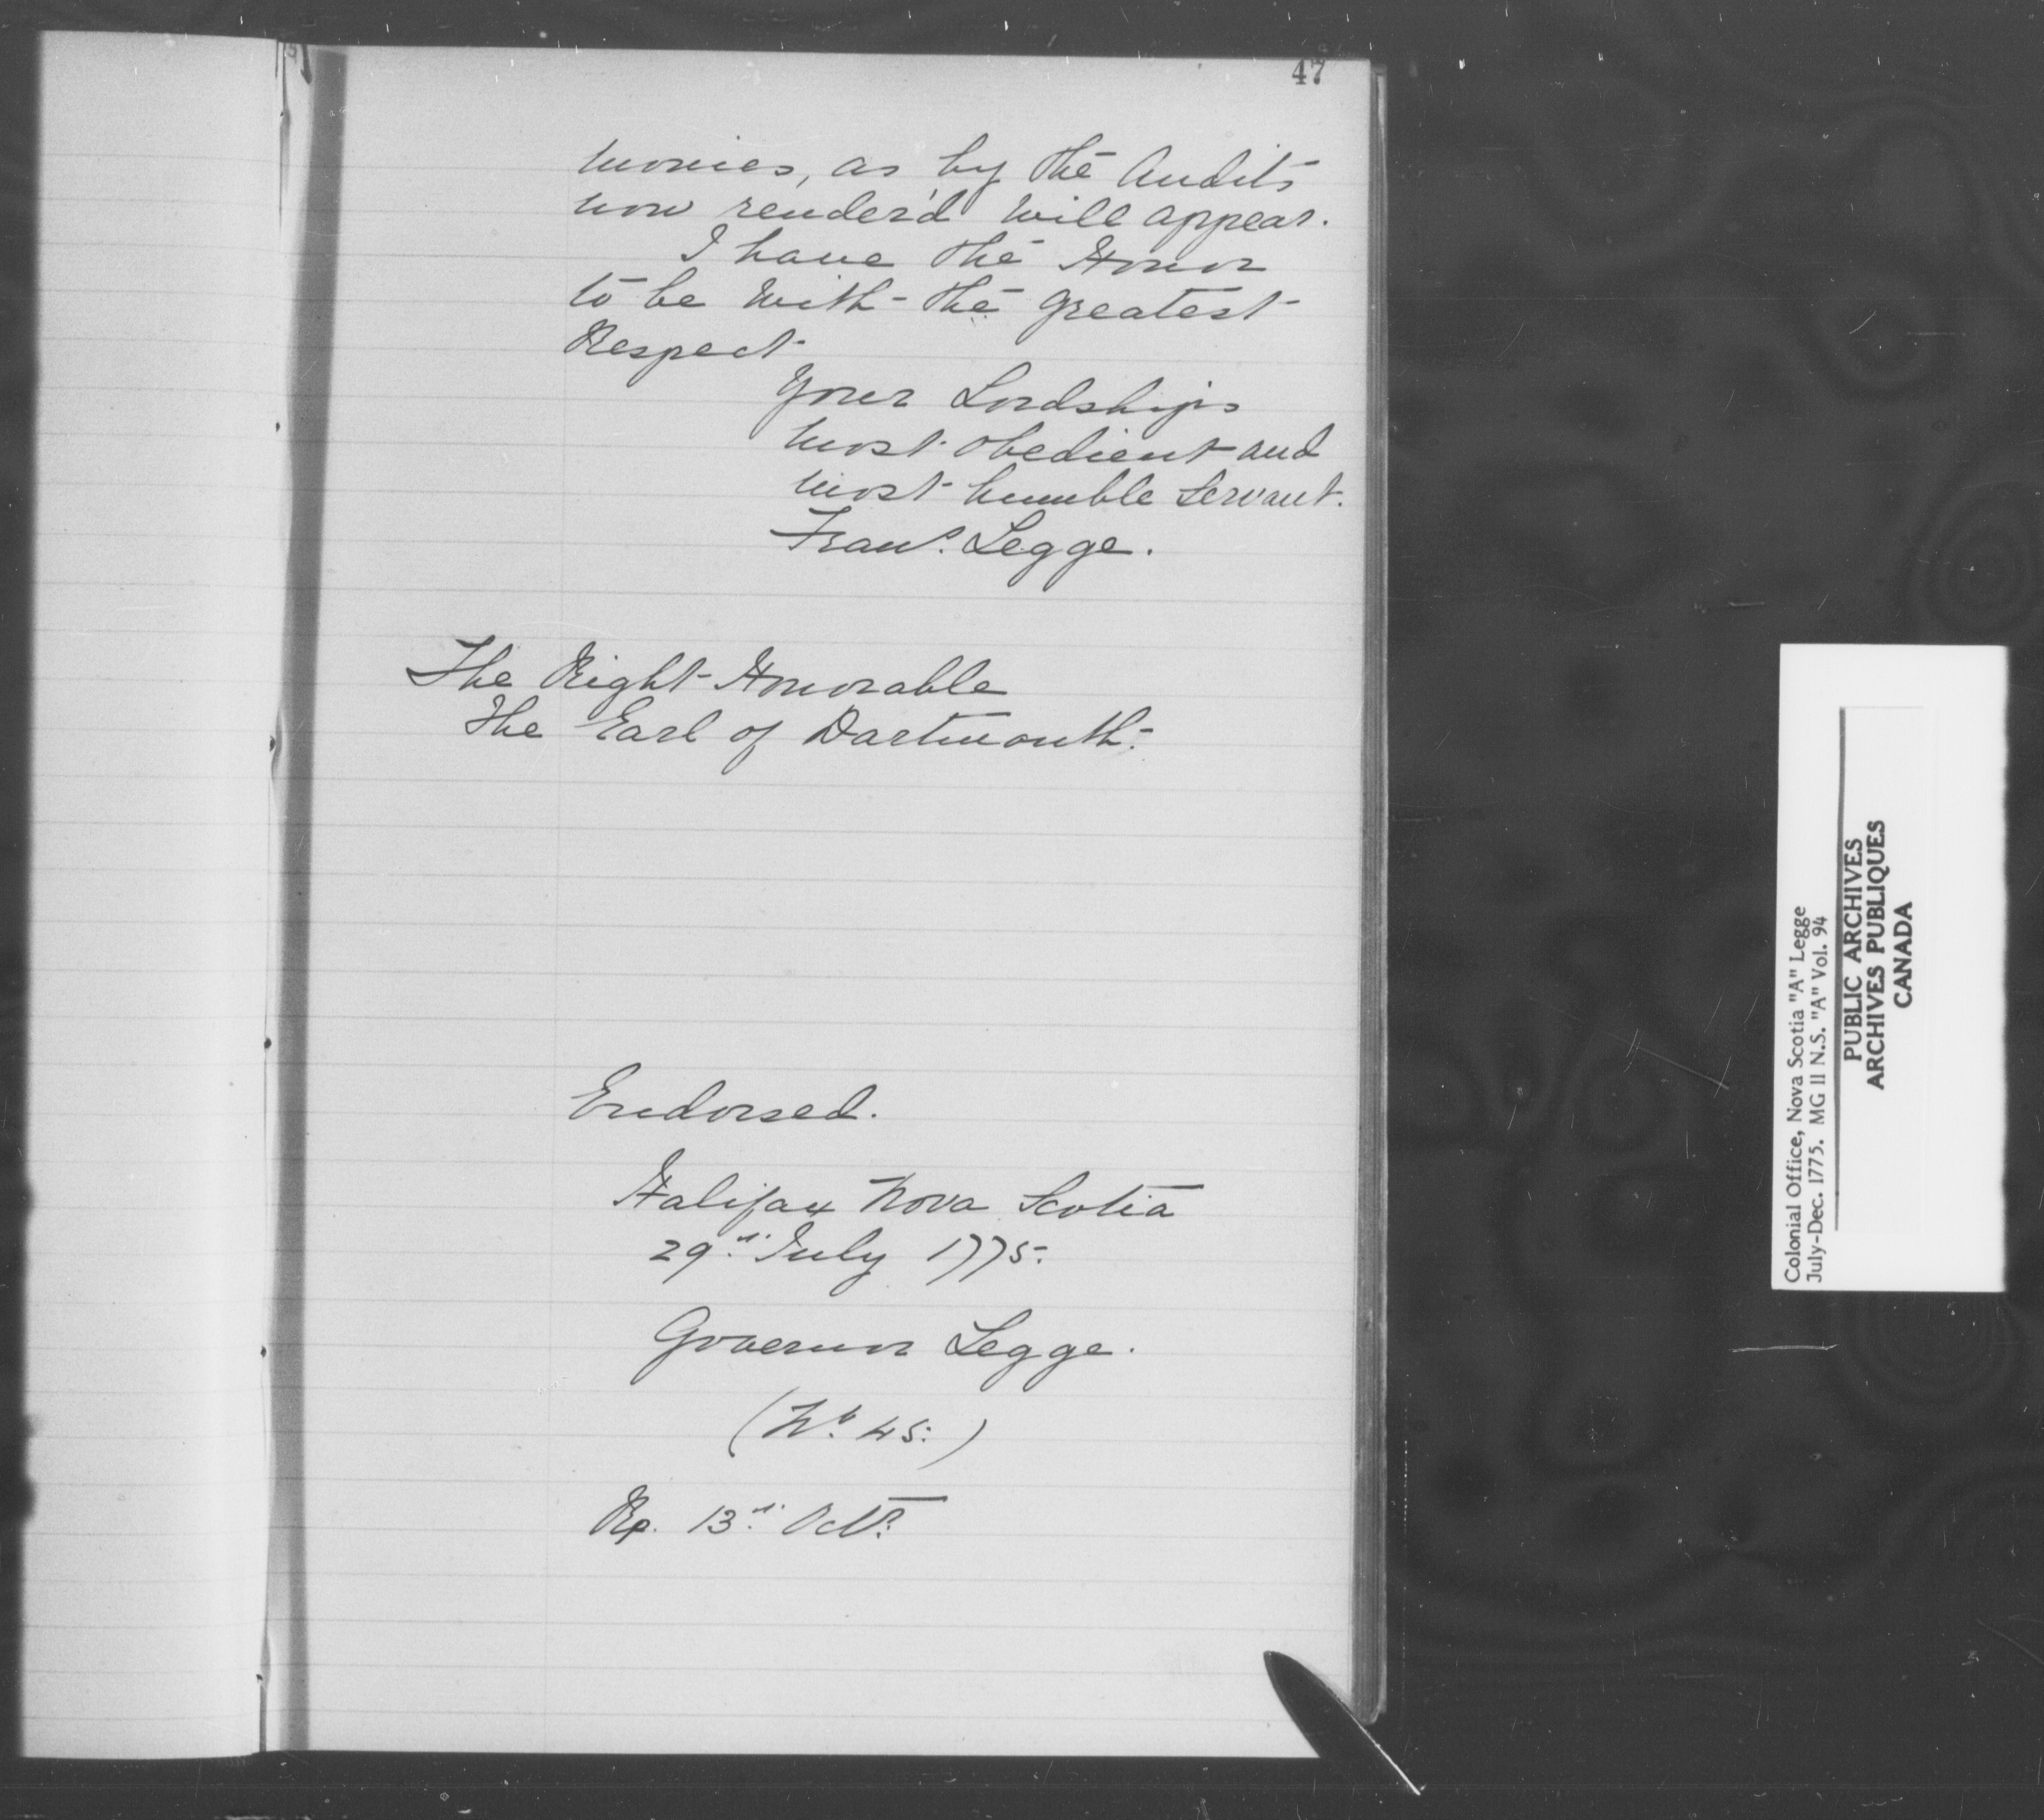 47
monies, as by the Audits
now render'd will appear.
I have the Honor
to be with the greatest
Respect
Your Lordships
most obedient and
most humble Servant.
Frans. Legge.
The Right Honorable
The Earl of Dartmouth.
Endorsed.
Halifax Nova Scotia
29th July 1775.
Governor Legge.
(No. 45.)
Rx. 13th Octr.
Colonial Office, Nova Scotia "A" Legge
July-Dec. 1775. MG 11 N.S. "A" Vol. 94
PUBLIC ARCHIVES
ARCHIVES PUBLIQUES
CANADA